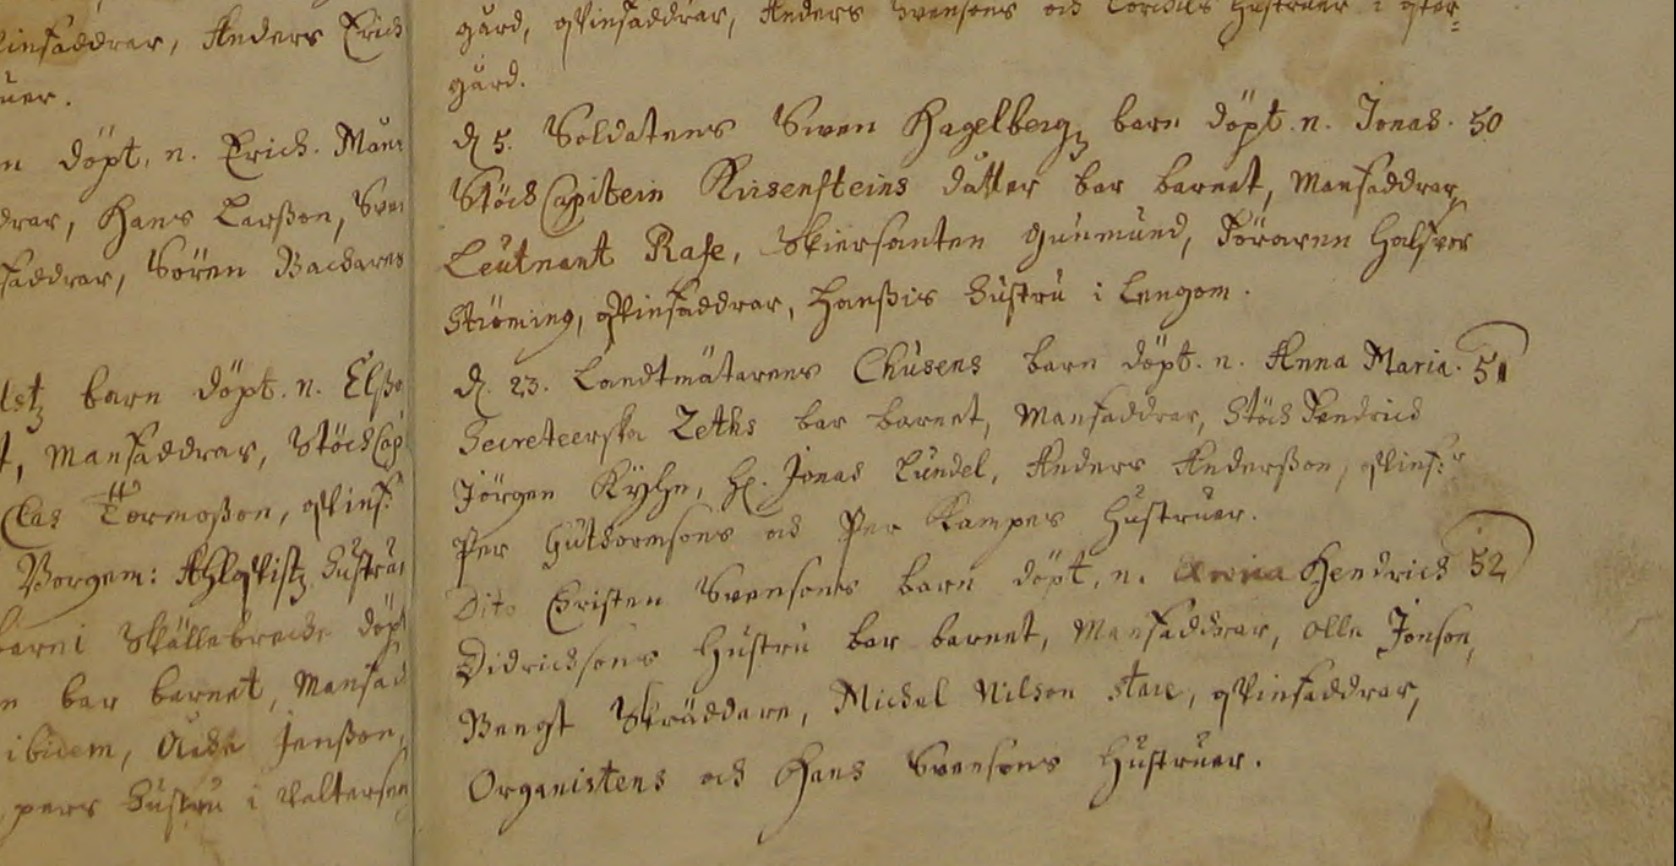 infaddrar, Anders Erich
uer.
n döpt. n. Erich. Man:
drar, Hans Larßon, Sven
faddrar, Sören Bachares
barn döpt. n. Elße
t, Manfaddrar, StöckCap
Clas Tormoßon, qvinf:
Borgem: Ahlqvistz hustru,
barn i Skällebrecke döpt
n bar barnet, Manfad
ibidem, Åcke Jenßon,
pers hustru i Valtersen
gård, qvinfaddrar, Anders Svensons och hustruer i
gård.
d. 5. Soldatens Swen Hagelbergz barn döpt. n. Jonas. 50
StöckCapitein Kusensteins datter bar barnet, Manfaddrar,
Leutnant Rase, Skiersanten Gunmund, Föraren Halfvor
Ströming, qvinfaddrar, Hanßis hustru i Lengom.
d. 23. Landtmätarens Chusens barn döpt. n. Anna Maria. 51
Secreteerska Zeths bar barnet, Manfaddrar, Stöck Fendrich
Jörgen Kyhn, H. Jonas Lundel, Anders Anderßon, qvinf:r
Per Guthormsons och Per Kampes Hustruer.
Dito Christen Svensons barn döpt, n. Anna Hendrich 52
Didrichsons Hustru bar barnet, Manfaddrar, Olle Jonson,
Bengt Skräddare, Michel Nilson Stare, qvinfaddrar,
Organistens och Hans Svensons Hustruer.